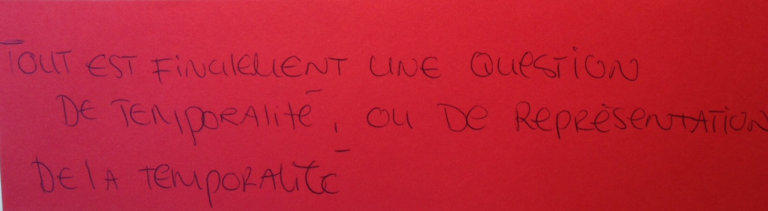 TOUT EST FINALEMENT UNE QUESTION
DE TEMPORALITÉ, OU DE REPRÉSENTATION
DE LA TEMPORALITÉ